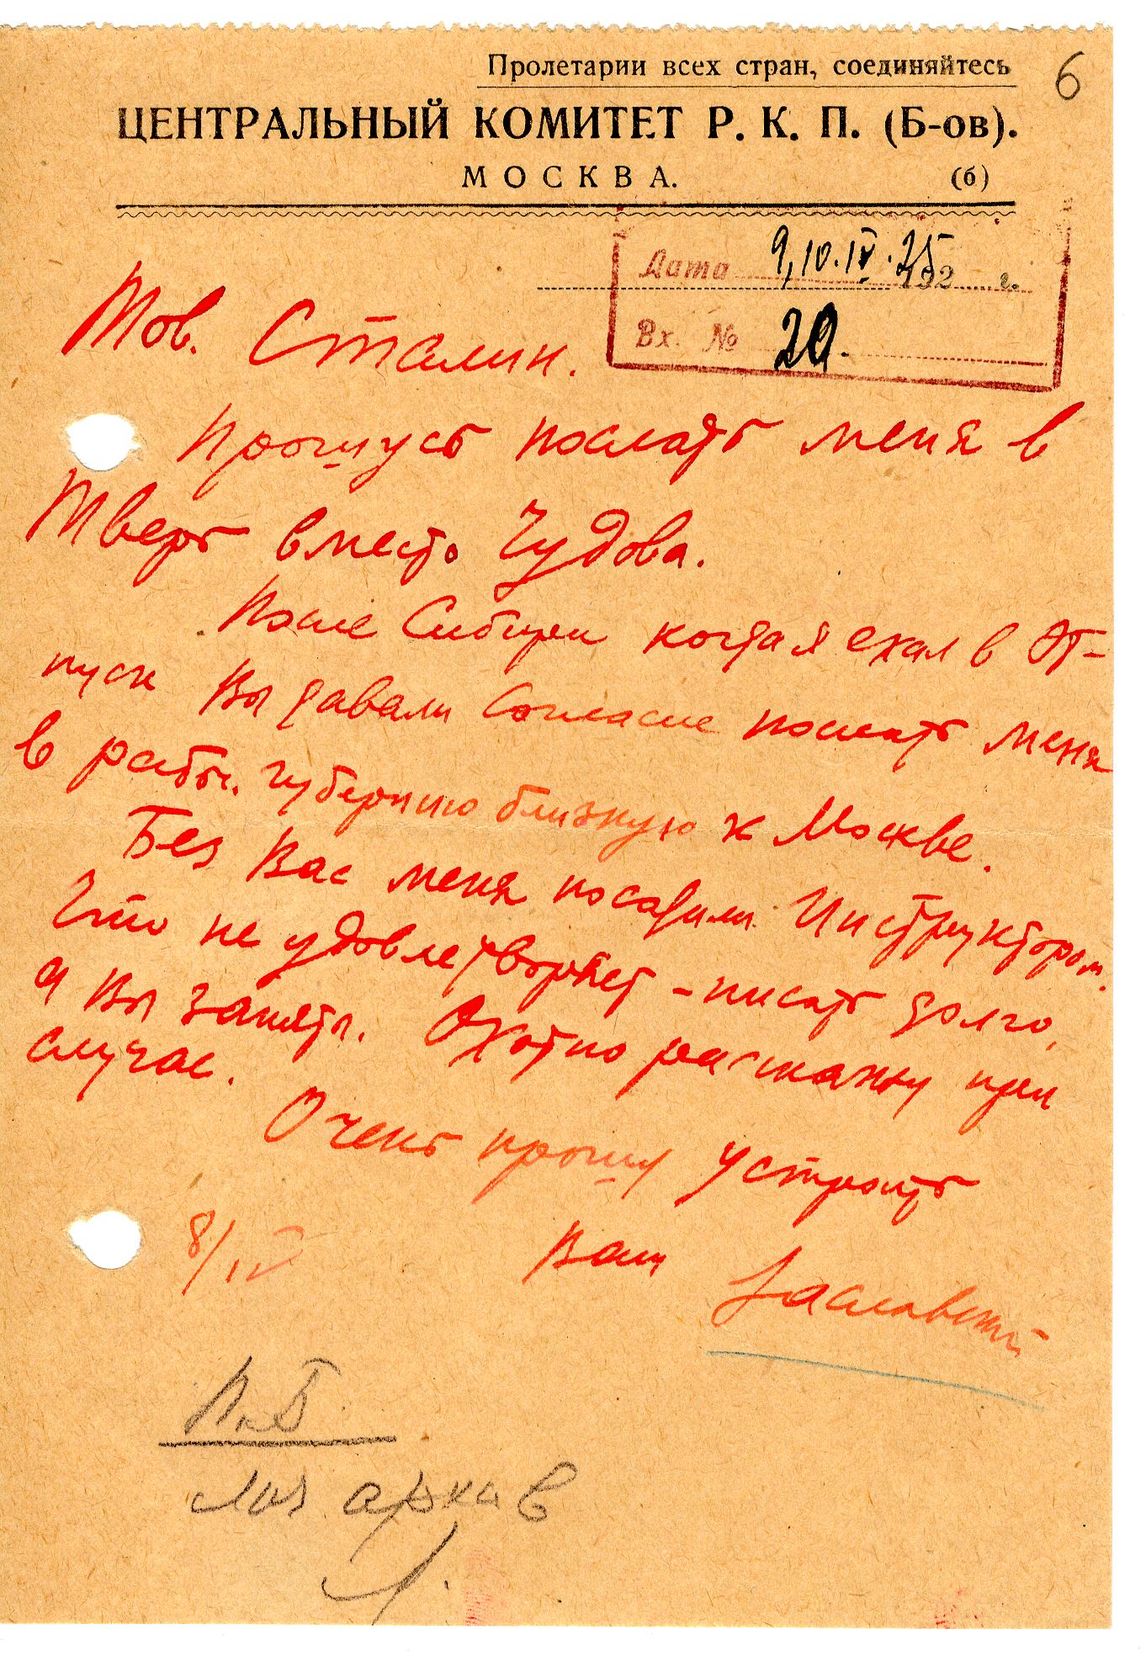 Пролетарии всех стран, соединяйтесь
6
ЦЕНТРАЛЬНЫЙ КОМИТЕТ Р. К. П. (Б-ов).
МОСКВА. (б)
Дата 9,10.IV.25 192 г.
Вх. № 20.
Тов. Сталин.
послать меня в
Тверь вместо Чудова.
После Сибири когда я ехал в От-
пуск Вы давали Согласие послать меня
в рабоч. губернию близкую к Москве.
Без Вас меня посадили Инструктором.
Это не удовлетворяет - писать долго,
а Вы заняты. Охотно расскажу при
случае.
Очень прошу устроить
8/IV Ваш Заславский
П.Б
архив